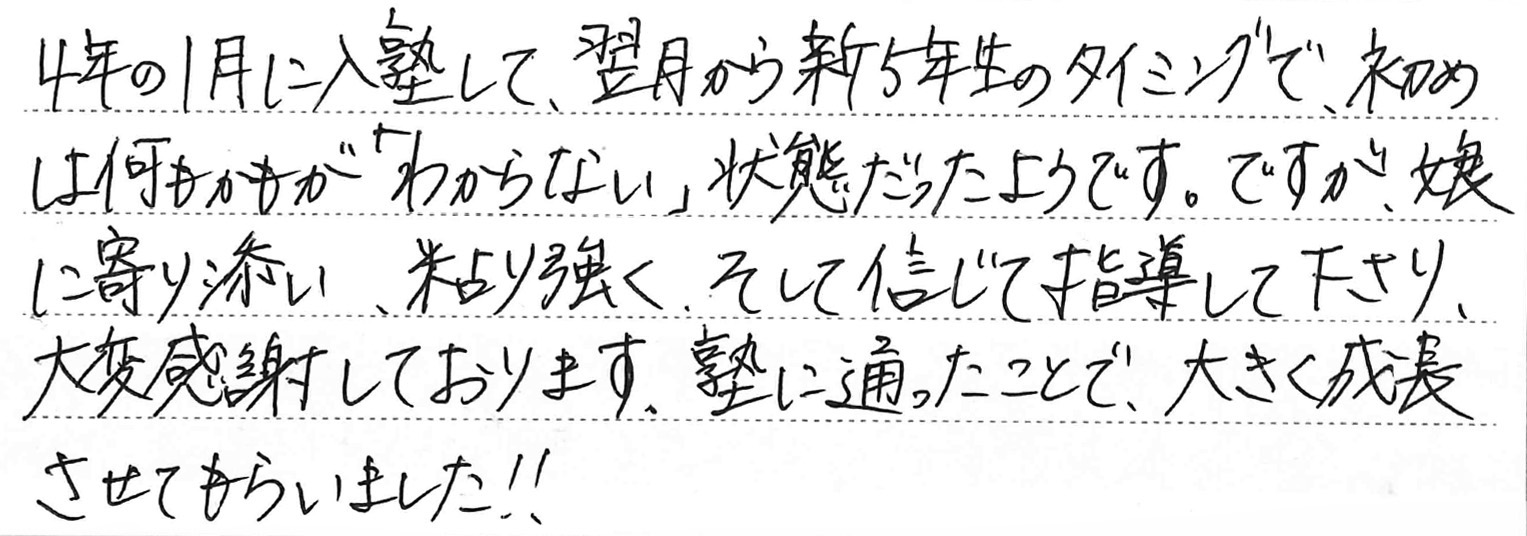 4年の1月に入塾して、翌月から新5年生のタイミングで、初め
は何もかもが「わからない」状態だったようです。ですが、娘
に寄り添い、粘り強く、そして信じて指導して下さり、
大変感謝しております、塾に通ったことで、大きく成長
させてもらいました!!